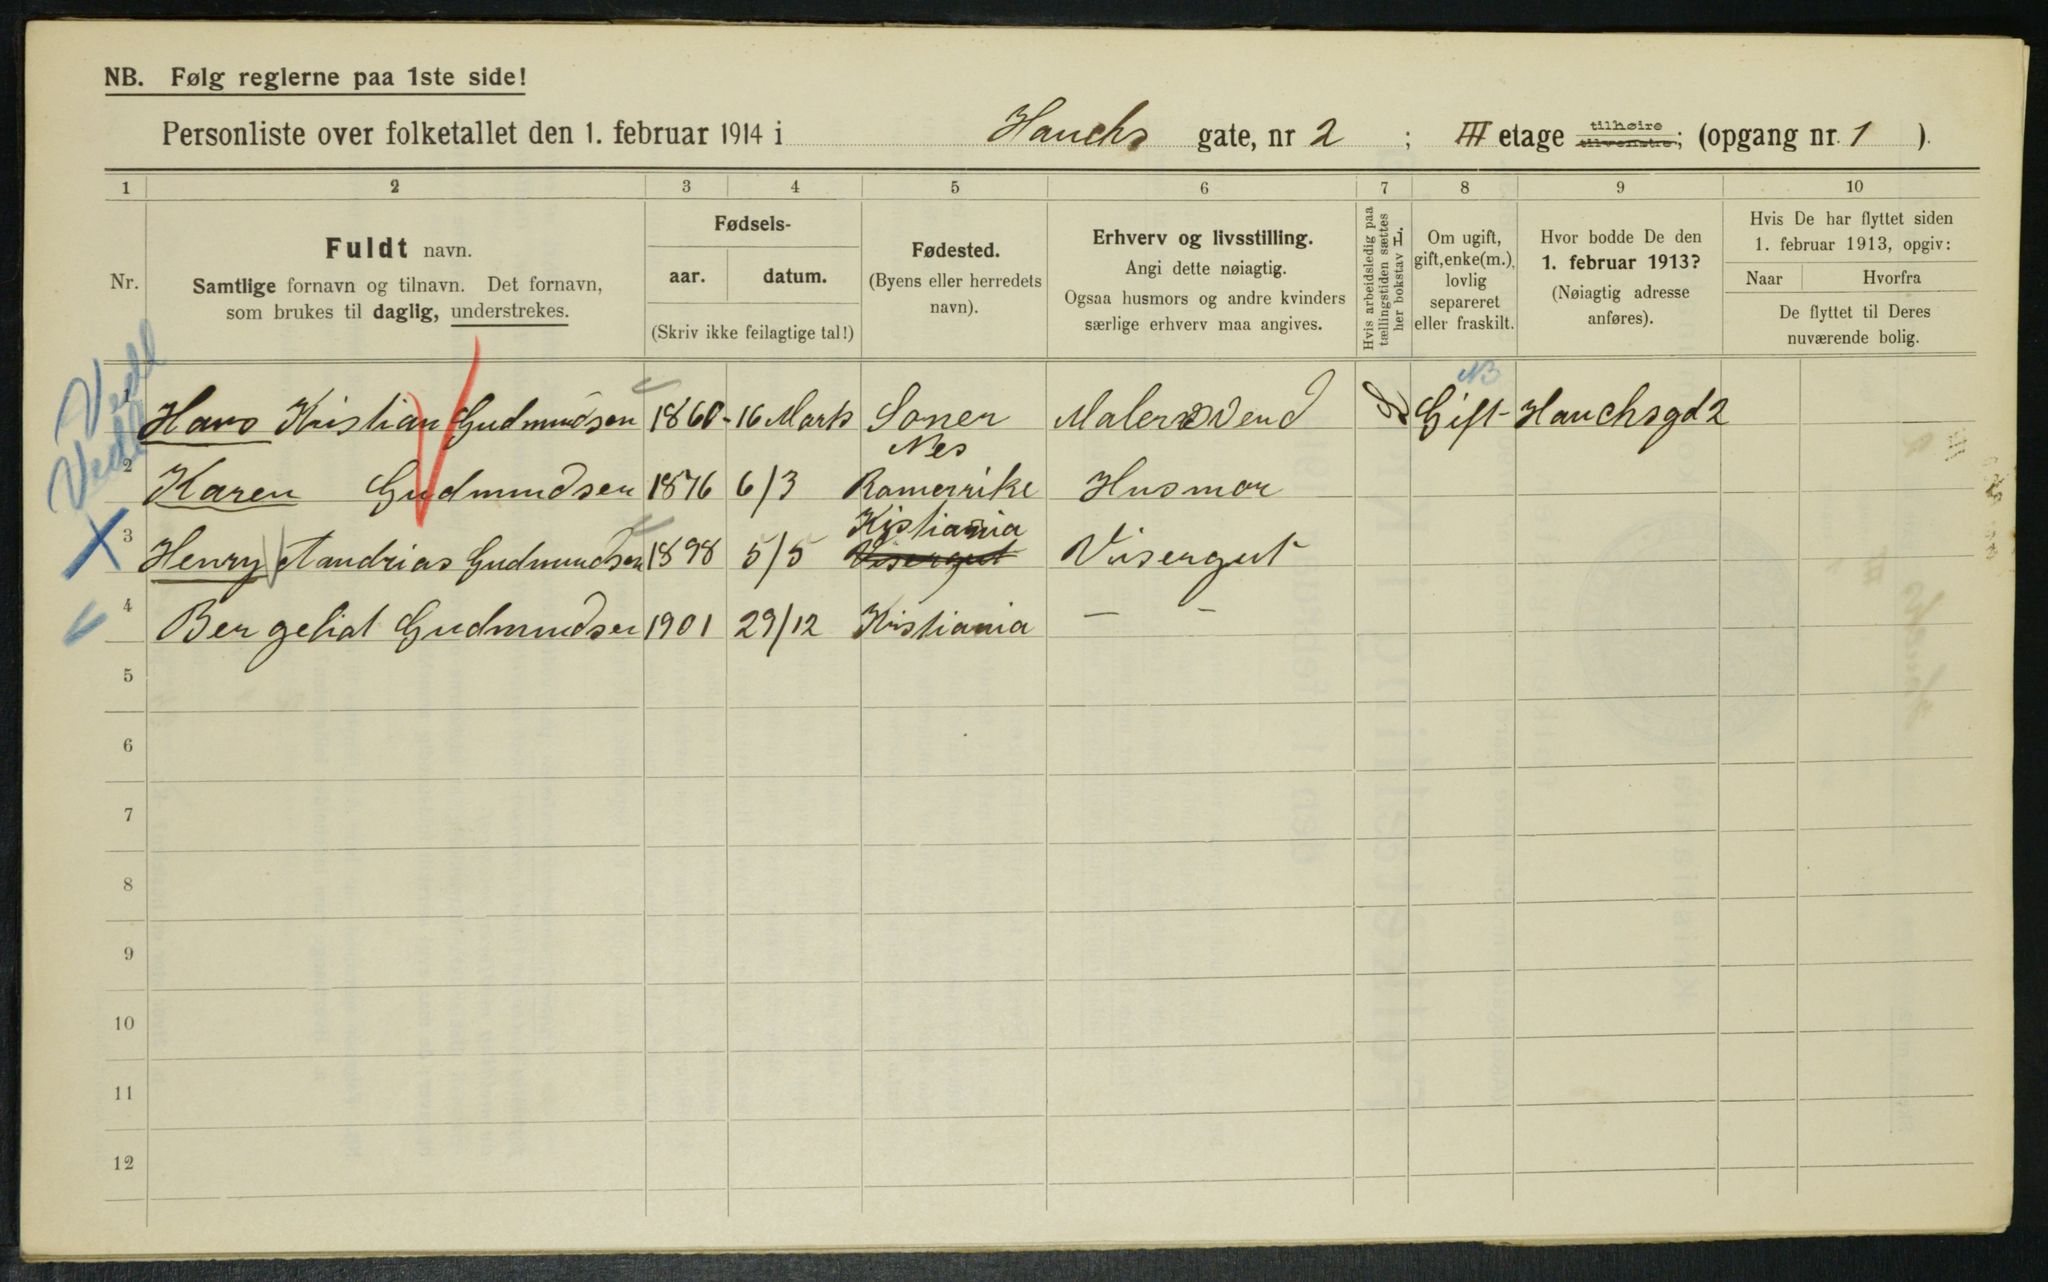 NB. Følg reglerne paa 1ste side!
Personliste over folketallet den 1. februar 1914 i Hauchs gate, nr 2 ; III etage tilhøire tilvenstre; (opgang nr. 1 ).
1 2 3 4 5 6 7 8 9 10
Nr.
Fuldt navn.
Samtlige fornavn og tilnavn. Det fornavn,
som brukes til daglig, understrekes.
Fødsels-
aar. datum.
(Skriv ikke feilagtige tal!)
Fødested.
(Byens eller herredets
navn).
Erhverv og livsstilling.
Angi dette nøiagtig.
Ogsaa husmors og andre kvinders
særlige erhverv maa angives.
Hvis arbeidsledig paa
tællingstiden sættes
her bokstav L.
Om ugift,
gift, enke(m.),
lovlig
separeret
eller fraskilt.
Hvor bodde De den
1. februar 1913?
(Nøiagtig adresse
anføres).
Hvis De har flyttet siden
1. februar 1913, opgiv:
Naar Hvorfra
De flyttet til Deres
nuværende bolig.
NB
1 Hans Kristian Gudmundsen 1860 - 16 Marts Soner Malersvend Gift Hauchsgd 2
Nes
2 Karen Gudmundsen 1876 6/3 Romerrike Husmor
Kristiania
3 Henry Aandrias Gudmundsen 1898 5/5 Visergut Visergut
4 Bergeliot Gudmundsen 1901 29/12 Kristiania — -
5
6
7
8
9
10
11
12